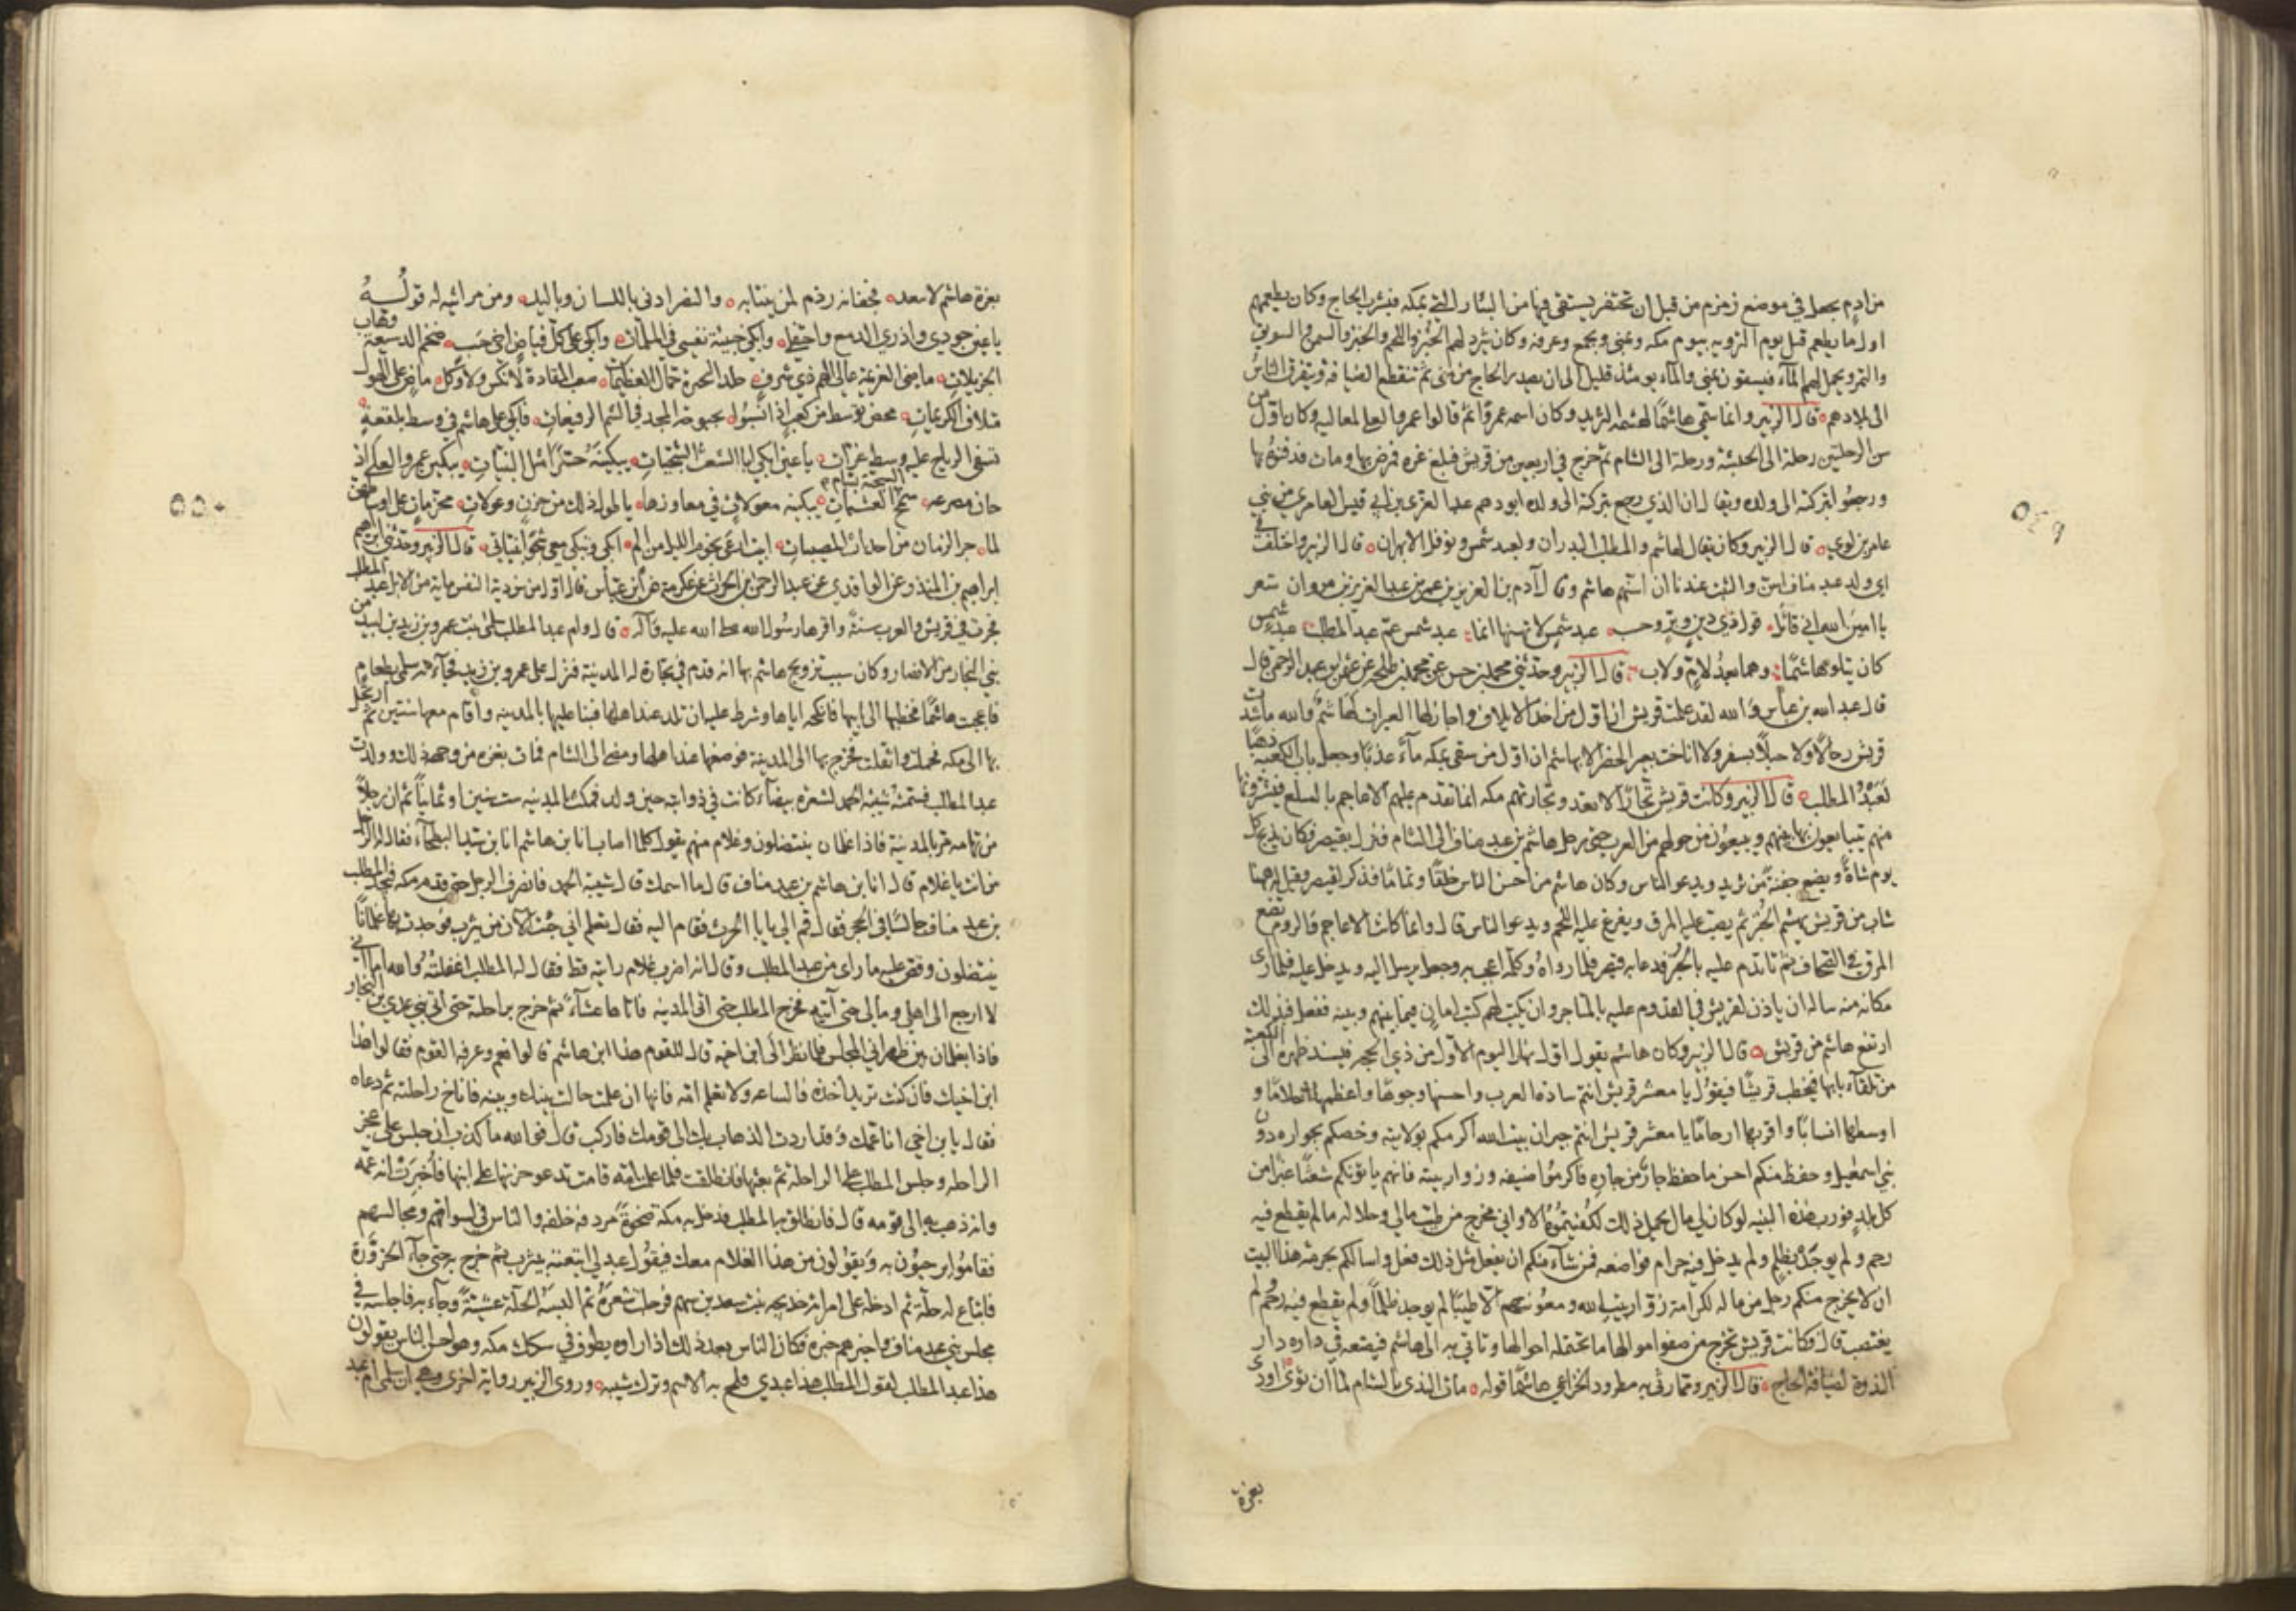 من ادم يجعل في موضع زمزم من قبل ان تحتفر يستقي فيها من البئار التي بمكه فيشرب الحاج وكان يطعمهم
اول ما يطعم قبل يوم الترويه بيوم مكه وبمنى وبجمع وعرفه وكان يثرد لهم الخبز واللحم والخبز والسمن والسويق
والتمر ويحمل لهم المآء فيسقون بمنى والمآء يومئذ قليل الى ان يصدر الحاج من منى ثم تنقطع الضيافه وتتفرق الناس
الى بلادهم قال الزبير وانما سمي هاشمًا لهشمه الثريد وكان اسمه عمرو ثم قالوا عمرو العلى لمعاليه وكان اول من
سن الرحلتين رحلة الى الحبشة ورحلة الى الشام ثم خرج في اربعين من قريش فبلغ غزه فمرض بها ومات فدفنوه بها
ورجعوا بتركته الى ولده ويقال ان الذي رجع بتركته الى ولده ابو دهم عبد العزى بن ابي قيس العامري من بني
عامر بن لوي قال الزبير وكان يقال لهاشم والمطلب البدران ولعبد شمس ونوفل الابهران قال الزبير واختلف في
اي ولد عبد مناف اسن والثبت عندنا ان اسنهم هاشم وقال آدم بن عبد العزيز بن عمر بن عبد العزيز بن مروان شعر
يا امين الله اني قائل قول ذي دين وبر وحسب عبد شمس لا تهنها انما عبد شمس عم عبد المطلب عبد شمس
كان يتلو هاشمًا وهما بعد لام ولاب قال الزبير وحدثني محمد بن حسن عن محمد بن طلحه عن عثمن بن عبد الرحمن قال
قال عبد الله بن عباس والله لقد علمت قريش ان اول من اخذ الايلاف واجاز لها العيرات لهاشم والله ما شدت
قريش رحالا ولا حبلا بسفر ولا اناخت بعير الحضر الا بهاشم ان اول من سقى بمكه مآء عذبا وجعل باب الكعبة ذهبا
لعبد المطلب قال الزبير وكانت قريش تجارا لا تعدو تجارتهم مكه انما تقدم عليهم الاعاجم بالسلع فيشترونها
منهم يتبايعون بها بينهم ويبيعون من حولهم من العرب حتى رحل هاشم بن عبد مناف الى الشام فنزل بقيصر فكان يذبح كل
يوم شاة ويضع جفنة من ثريد ويدعو الناس وكان هاشم من احسن الناس خلقا وتماما فذكر لقيصر وقيل له ههنا
شاب من قريش يهشم الخبز ثم يصب عليه المرق ويفرغ عليه اللحم ويدعو الناس قال وانما كانت الاعاجم والروم تضع
المرق في الصحاف ثم تاتدم عليه بالخبز فدعا به قيصر فلما رواه وكلمه اعجب به وجعل يرسل اليه ويدخل عليه فلما راى
مكانه منه ساله ان ياذن لقريش في القدوم عليه بالمتاجر وان يكتب لهم كتب امان فيما بينهم وبينه ففعل فبذلك
ارتفع هاشم من قريش قال الزبير وكان هاشم يقول اول نهار اليوم الاول من ذي الحجه فيسند ظهره الى الكعبة
من تلقاء بابها فيخطب قريشا فيقول يا معشر قريش انتم سادة العرب واحسنها وجوها واعظمها احلاما و
اوسطها انسابا واقربها ارحاما يا معشر قريش انتم جيران بيت الله اكرمكم بولايته وخصكم بجواره دون
بني اسمعيل وحفظ منكم احسن ما حفظ جار من جاره فاكرموا ضيفه وزوار بيته فانهم ياتونكم شعثا غبرا من
كل بلد فورب هذه البنيه لو كان لي مال يحمل ذلك لكفيتموه الا واني مخرج من طيب مالي وحلاله ما لم يقطع فيه
رحم ولم يوخذ بظلم ولم يدخل فيه حرام فواضعه فمن شاء منكم ان يفعل مثل ذلك فعل واسالكم بحرمة هذا البيت
ان لا يخرج منكم رجل من ماله لكرامة زوار بيت الله ومعونتهم الا طيبا لم يوخذ ظلما ولم يقطع فيه رحم ولم
يغتصب قال فكانت قريش تخرج من صفو اموالها ما تحتمله احوالها وتاتي به الى هاشم فيضعه في داره دار
الندوة لضيافة الحاج قال الزبير ومما رثى به مطرود الخزاعي هاشما قوله مات الندى بالشام لما ان ثوى اودى
بغزة
بغزة هاشم لا يبعد فجفانه رذم لمن ينتابه والنصر ادنى باللسان وباليد ومن مراثيه له قوله
يا عين جودي واذري الدمع واحتفلي وابكي خبيئة نفسي في الملمات وابكي على كل فياض اخي حسب ضخم الدسيعة وهاب
الجزيلات ماضي العزيمة عالي الهم ذي شرف جلد النحيزة حمال العظيمات صعب المقادة لا نكس ولا وكل ماض على الهول
متلاف الكريمات محض توسط من كعب اذا نسبوا بحبوحة المجد في الشم الرفيعات فابكي على هاشم في وسط بلقعة
تسفي الرياح عليه وسط غزات يا عين ابكي ابا الشعث الشجيات يبكينه حسرا مثل البنيات يبكين عمرو العلى اذ
حان مصرعه سمح السجية بسام العشيات يبكينه معولات في معاوزها يا طول ذلك من حزن وعولات محتزمات على اوساطهن
لما جر الزمان من احداث المصيبات ابيت ارعى نجوم الليل من الم ابكي وتبكي معي شجوا بنياتي قال الزبير وحدثني ابراهيم
ابراهيم بن المنذر عن الواقدي عن عبد الرحمن بن الحرث عن عكرمة عن ابن عباس قال اول من سن دية النفس ماية من الابل عبد المطلب
فجرت في قريش والعرب سنة واقرها رسول الله صلى الله عليه وآله قال وام عبد المطلب سلمى بنت عمرو بن زيد بن لبيد من
بني النجار من الانصار وكان سبب تزويج هاشم بها انه قدم في تجارة له المدينة فنزل على عمرو بن زيد فجآءته سلمى بطعام
فاعجبت هاشما فخطبها الى ابيها فانكحه اياها وشرط عليه ان تلد عند اهلها فبنا عليها بالمدينه واقام معها سنتين ثم ارتحل
بها الى مكه فحملت واثقلت فخرج بها الى المدينة فوضعها عند اهلها ومضى الى الشام فمات بغزه من وجهه ذلك وولدت
عبد المطلب فسمته شيبة الحمد لشعره بيضاء كانت في ذوابته حين ولد فمكث بالمدينه ست سنين او ثمانيا ثم ان رجلا
من تهامه مر بالمدينة فاذا غلمان ينتضلون وغلام منهم يقول كلما اصاب انا ابن هاشم انا ابن سيد البطحاء فقال له الرجل
من انت يا غلام قال انا ابن هاشم بن عبد مناف قال ما اسمك قال شيبة الحمد فانصرف الرجل حتى قدم مكه فيجد المطلب
بن عبد مناف جالسا في الحجر فقال قم الي يا ابا الحرث فقام اليه فقال تعلم اني جئت الآن من يثرب فوجدت بها غلمانا
ينتضلون وقص عليه ما راى من عبد المطلب وقال انه اضرب غلام رايته قط فقال له المطلب اغفلته والله اما اني
لا ارجع الى اهلي ومالي حتى آتيه فخرج المطلب حتى اتى المدينه فاتاها عشاء ثم خرج براحلته حتى اتى بني عدي بن النجار
فاذا بغلمان بين ظهراني المجلس فلما نظر الى ابن اخيه قال للقوم هذا ابن هاشم قالوا نعم وعرفه القوم فقالوا هذا
ابن اخيك فان كنت تريد اخذه فالساعه ولا تعلم امه فانها ان علمت حالت بينك وبينه فاناخ راحلته ثم دعاه
فقال يا بن اخي انا عمك وقد اردت الذهاب بك الى قومك فاركب قال فوالله ما كذب ان جلس على عجز
الراحله وجلس المطلب على الراحله ثم بعثها فانطلقت فلما علمت امه قامت تدعو حزنها على ابنها فاخبرت انه عمه
وانه ذهب به الى قومه قال فانطلق به المطلب فدخل به مكة ضحوة مردفه خلفه والناس في اسواقهم ومجالسهم
فقاموا يرحبون به ويقولون من هذا الغلام معك فيقول عبد لي ابتعته بيثرب ثم خرج به حتى جآء الحزورة
فابتاع له حلة ثم ادخله على امراته خديجه بنت سعد بن سهم فرجلت شعره ثم البسه الحلة عشية وجآء به فاجلسه في
مجلس بني عبد مناف واخبرهم خبره فكان الناس بعد ذلك اذا راوه يطوف في سكك مكه وهو احسن الناس يقولون
هذا عبد المطلب لقول المطلب هذا عبدي فلج به الاسم وترك شيبه وروى الزبير رواية اخرى وهي ان سلمى ام عبد